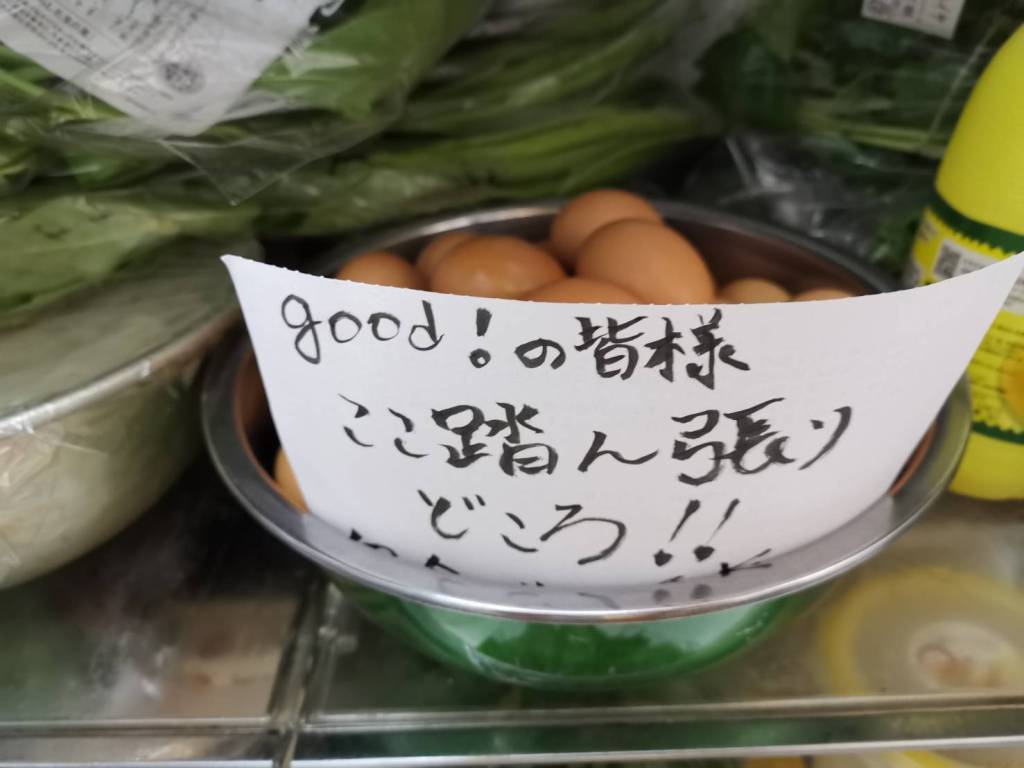 good!の皆様
ここ踏ん張り
どころ!!